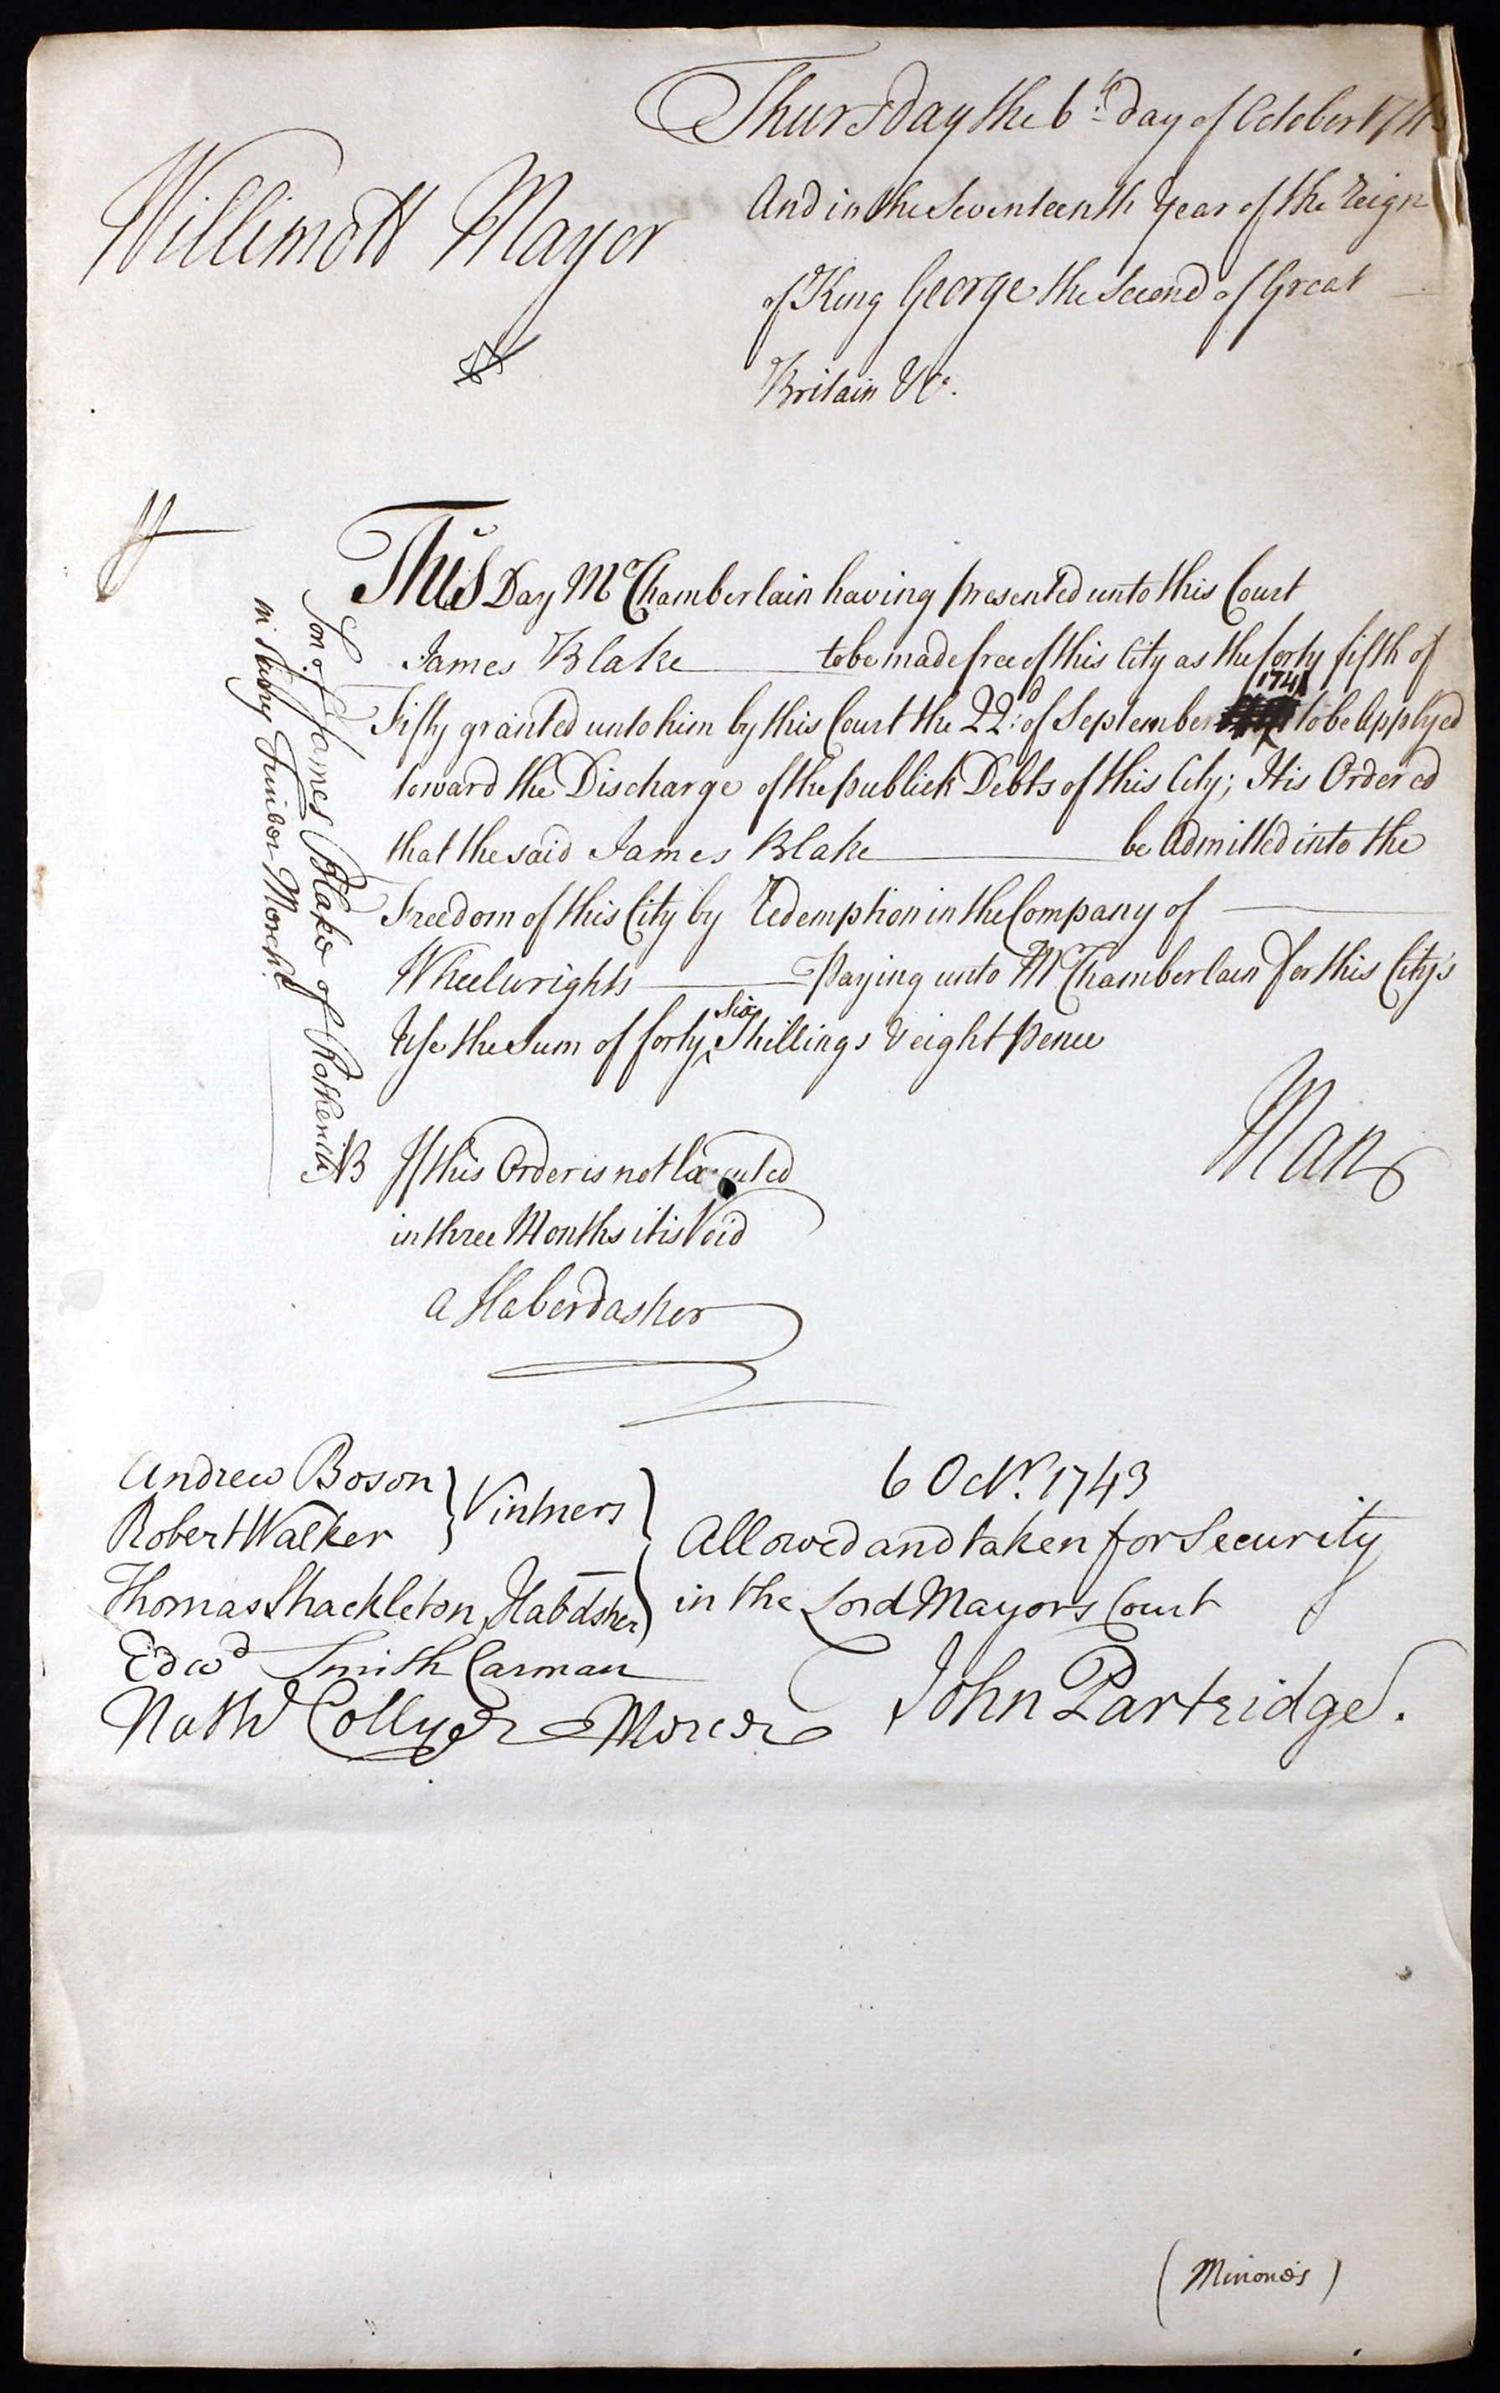 Thursday the 6th day of October 1743
And in the Seventeenth Year of the Reign
of King George the Second of Great
Britain &c.
Willimott Mayor
This Day Mr Chamberlain having presented unto this Court
James Blake to be made free of this City as the forty fifth of
1741
Fifty granted unto him by this Court the 22d of September to be Applyed
toward the Discharge of the publick Debts of this City; It is Ordered
that the said James Blake be Admitted into the
Freedom of this City by Redemption in the Company of
Wheelwrights Paying unto Mr Chamberlain for this City's
Six
Use the Sum of forty ^ Shillings & eight Pence
Man
Son of James Blake of Rotherith
in Surry Timber Mercht
NB If this Order is not Executed
in three Months it is Void
a Haberdasher
Andrew Boson
Robert Walker } Vintners
Thomas Shackleton Habdsher
Edwd Smith Carman
Nathl Collyer Mercer
6 Octr. 1743
Allowed and taken for Security
in the Lord Mayors Court
John Partridge.
(Minories)